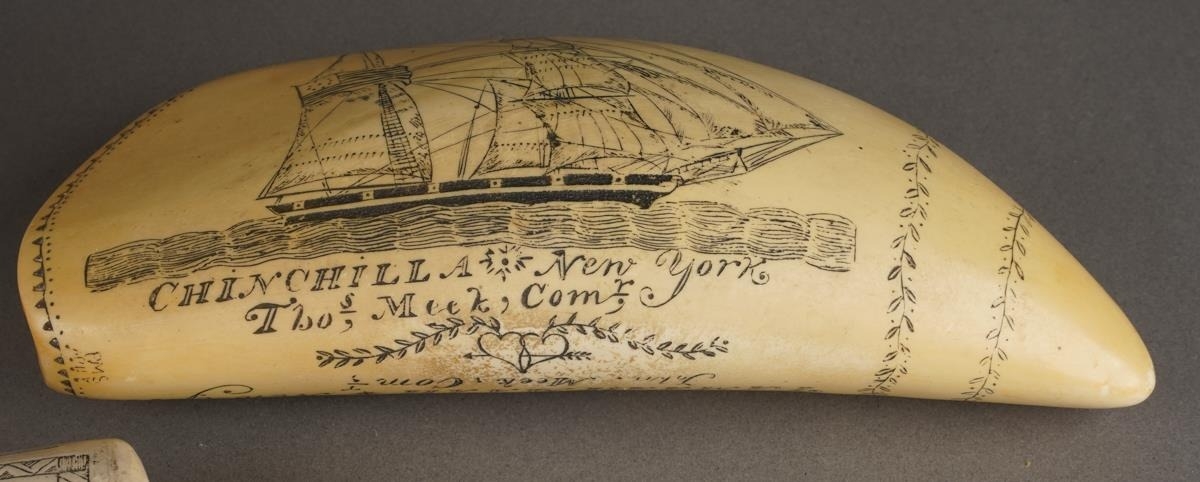 CHINCHILLA New York
Thos, Meek, Comr,
John Meek, Comr